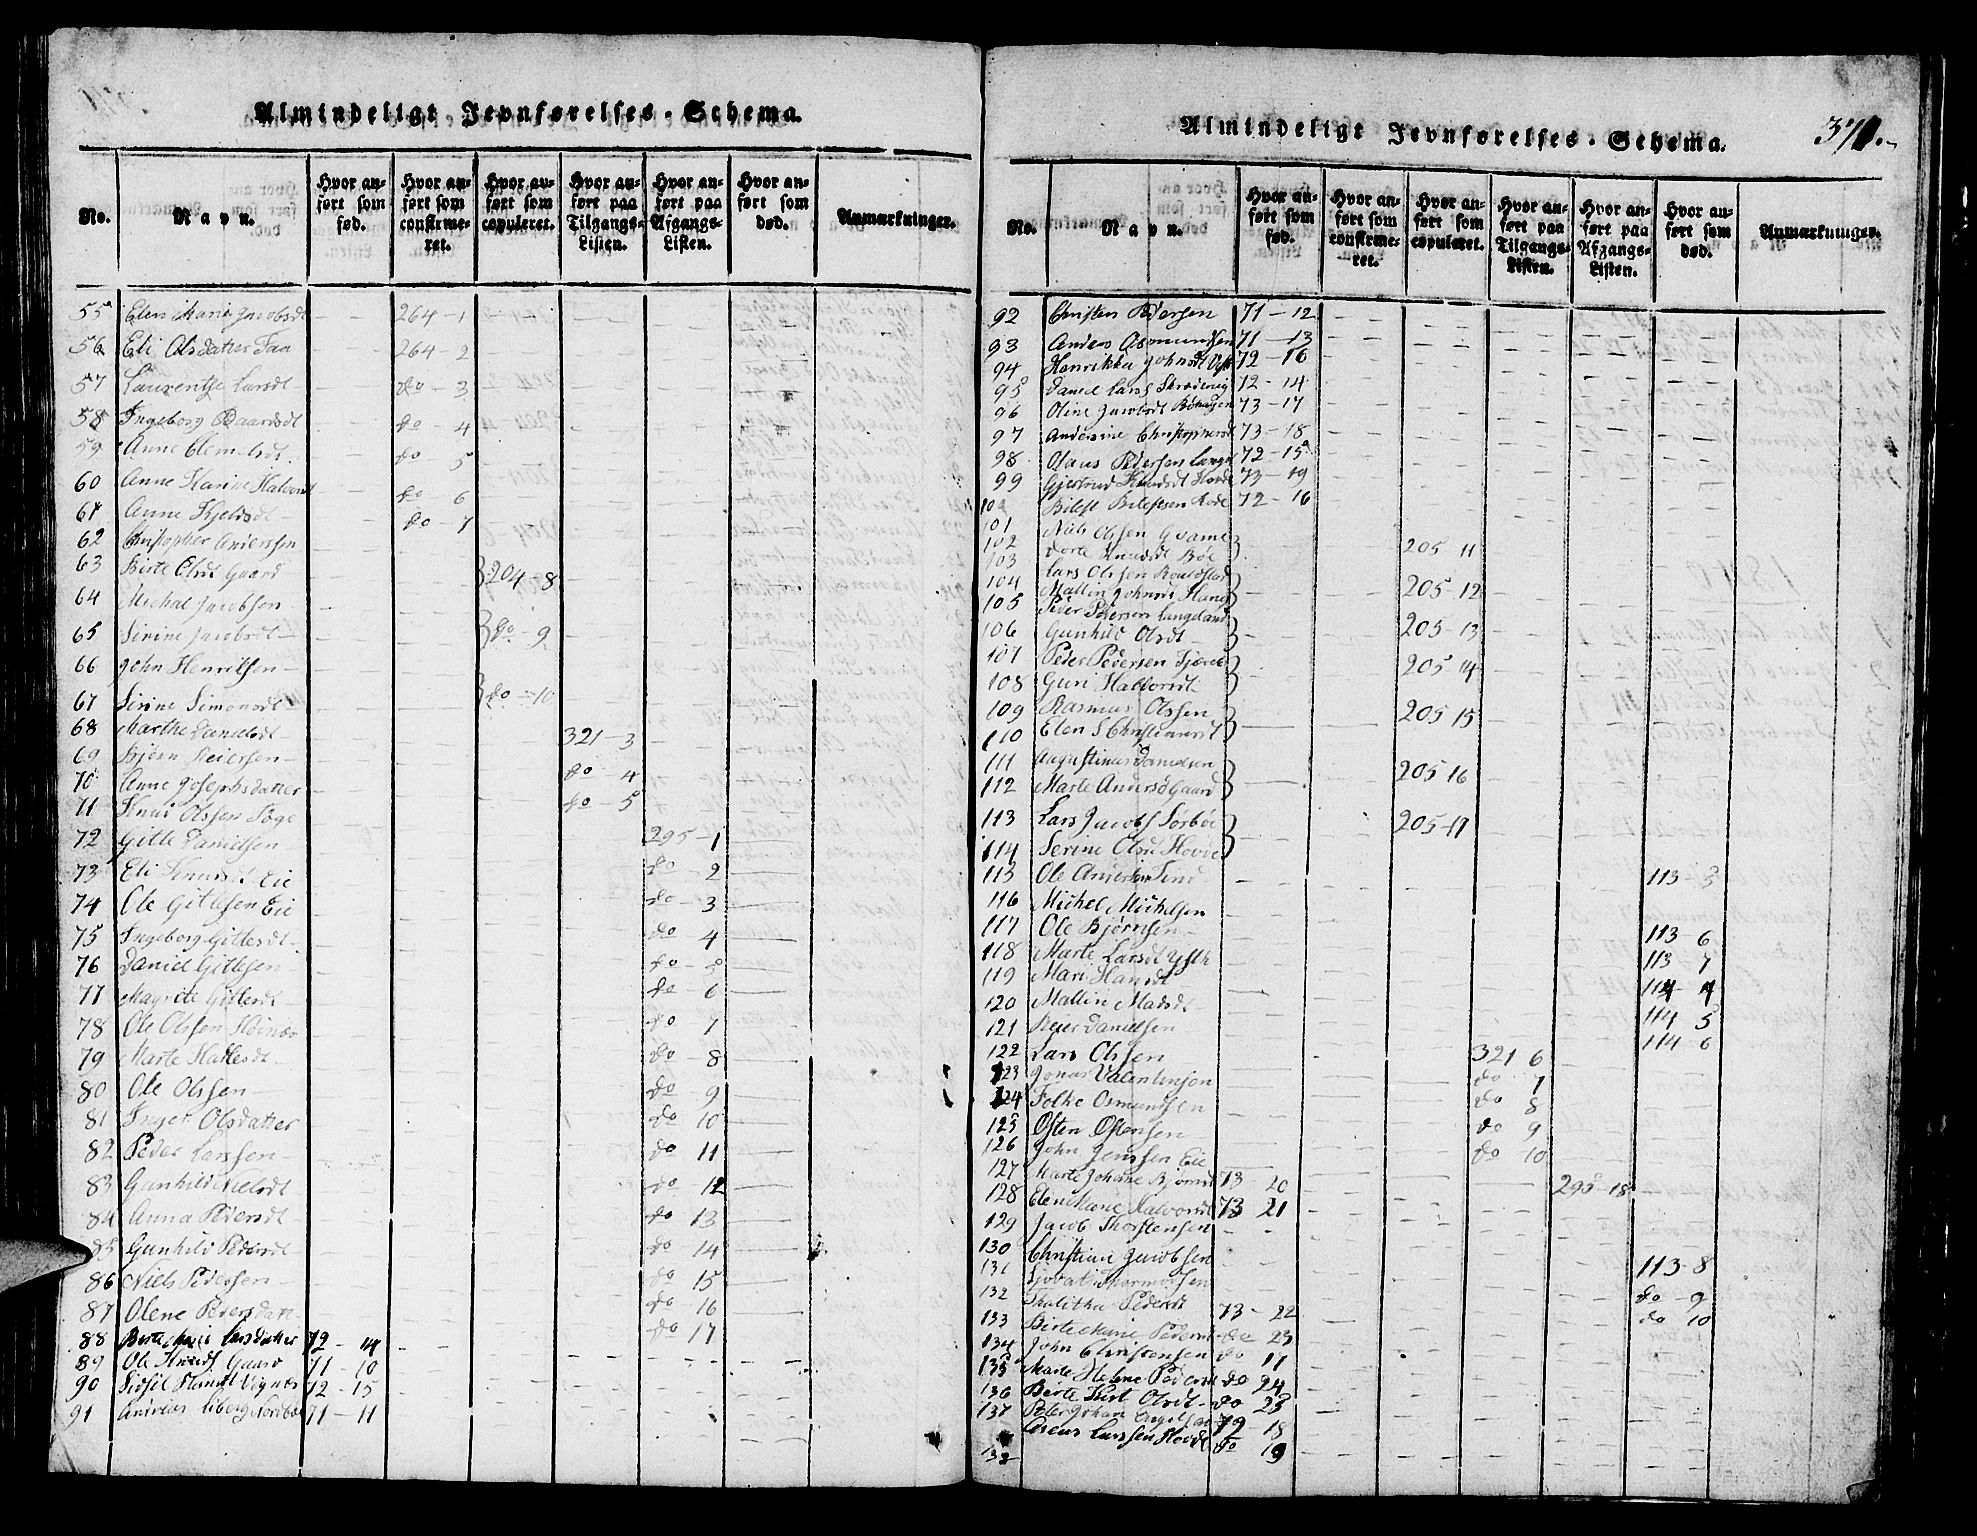 Almindeligt Jevnførelses-Schema.
No.
Navn.
Hvor anført som fød.
Hvor anført som confirmeret.
Hvor anført som copuleret.
Hvor anført paa Tilgangs-Listen.
Hvor anført paa Afgangs-Listen.
Hvor anført som død.
Anmærkninger.
55 Elen Marie Jacobsdt 264-1
56 Eli Olsdatter 264-2
57 Larsdt do 3
58 Ingeborg Baardsdt do 4
59 Anne Clemetsdt do 5
60 Anne Karine Halvorsdt do 6
61 Anne Kjeldsdt do 7
62 Christopher Andersen
63 Birte Olsdt Gaard 204-8
64 Michal Jacobsen
65 Sirine Jacobsdt do 9
66 John Henriksen
67 Sirine Simonsdt do 10
68 Marthe Danielsdt 321-3
69 Bjørn Reiersen do 4
70 Anne Josephsdatter do 5
71 Knud Olssen 295-1
72 Gitle Danielsen do 2
73 Eli Knudsdt Eie do 3
74 Ole Gitlesen Eie do 4
75 Ingeborg Gitlesdt do 5
76 Daniel Gitlesen do 6
77 Magrete Gitlesdt do 7
78 Ole Olssen do 8
79 Marte do 9
80 Ole Olssen do 10
81 Inger Olsdatter do 11
82 Peder Larssen do 12
83 Gunhild Nielsdt do 13
84 Anna Pedersdt do 14
85 Gunhild Pedersdt do 15
86 Niels Pederssen do 16
87 Olene Pedersdatt do 17
88 Birte Marie Larsdatter 72-14
89 Ole Knuds Gaard 71-10
90 72-15
91 71-11
Almindeligt Jevnførelses-Schema.
371.
No.
Navn.
Hvor anført som fød.
Hvor anført som confirmeret.
Hvor anført som copuleret.
Hvor anført paa Tilgangs-Listen.
Hvor anført paa Afgangs-Listen.
Hvor anført som død.
Anmærkninger.
92 Christen Pedersen 71-12
93 Anders Osmundsen 71-13
94 Henrikka Johnsdt 72-16
95 Daniel Lars 72-14
96 Oline Jacobsdt 73-17
97 Andersine Christophersdt 73-18
98 Olaus Pedersen 72-15
99 Gjertrud Knudsdt Hovde 73-19
100 72-16
101 Niels Olssen
102 Dorte Knudsdt Bøe 205-11
103 Lars Olssen
104 Mallin Johnsdt 205-12
105 Peder Pedersen Langeland
106 Gunhild Olsdt 205-13
107 Peder Pedersen
108 Guri Halvorsdt 205-14
109 Rasmus Olssen
110 Elen S Christiansdt 205-15
111 Augustinus Danielsen
112 Marte Andersd Gaard 205-16
113 Lars Jacobs Sørbøe
114 Serine Olsd Hovde 205-17
115 Ole 113-5
116 Michel Michelsen
117 Ole Bjørnsen 113 6
118 Marte Larsdt 113 7
119 Mari Hansdt 114 4
120 Mallin Madsdt 114 5
121 Reier Danielsen 114 6
122 Lars Olssen 321 6
123 Jonas Valentinsen do 7
124 Folke Osmundsen do 8
125 Østen Østensen do 9
126 John Jenssen Eie do 10
127 Marte Johane Bjørnsdt 73 20 295-18
128 Elen Marie Halvorsdt 73 21
129 Jacob Thorstensen
130 Christian Jacobsen 113-8
131 do 9
132 Thalitha Pedersdt 73-22 do 10
133 Birte Marie Pedersdt do 23
134 John Christensen do 17
135 Marte Helene Pedersdt do 24
136 Birte Olsdt do 25
137 Peter Johan 72 18
138 Larssen Hovde do 19